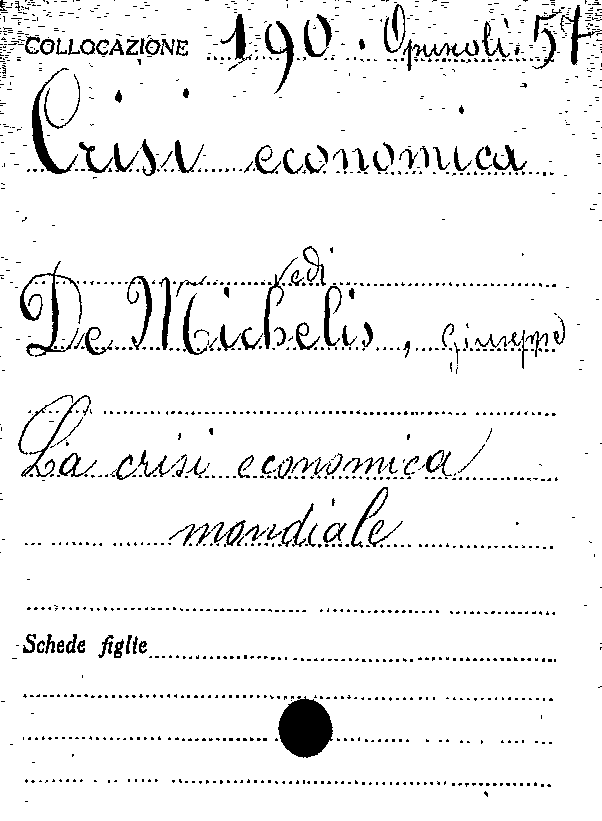 COLLOCAZIONE 190. Opuscoli. 57
Crisi economica
vedi
De Michelis, Giuseppe
La crisi economica
mondiale
Schede figlie